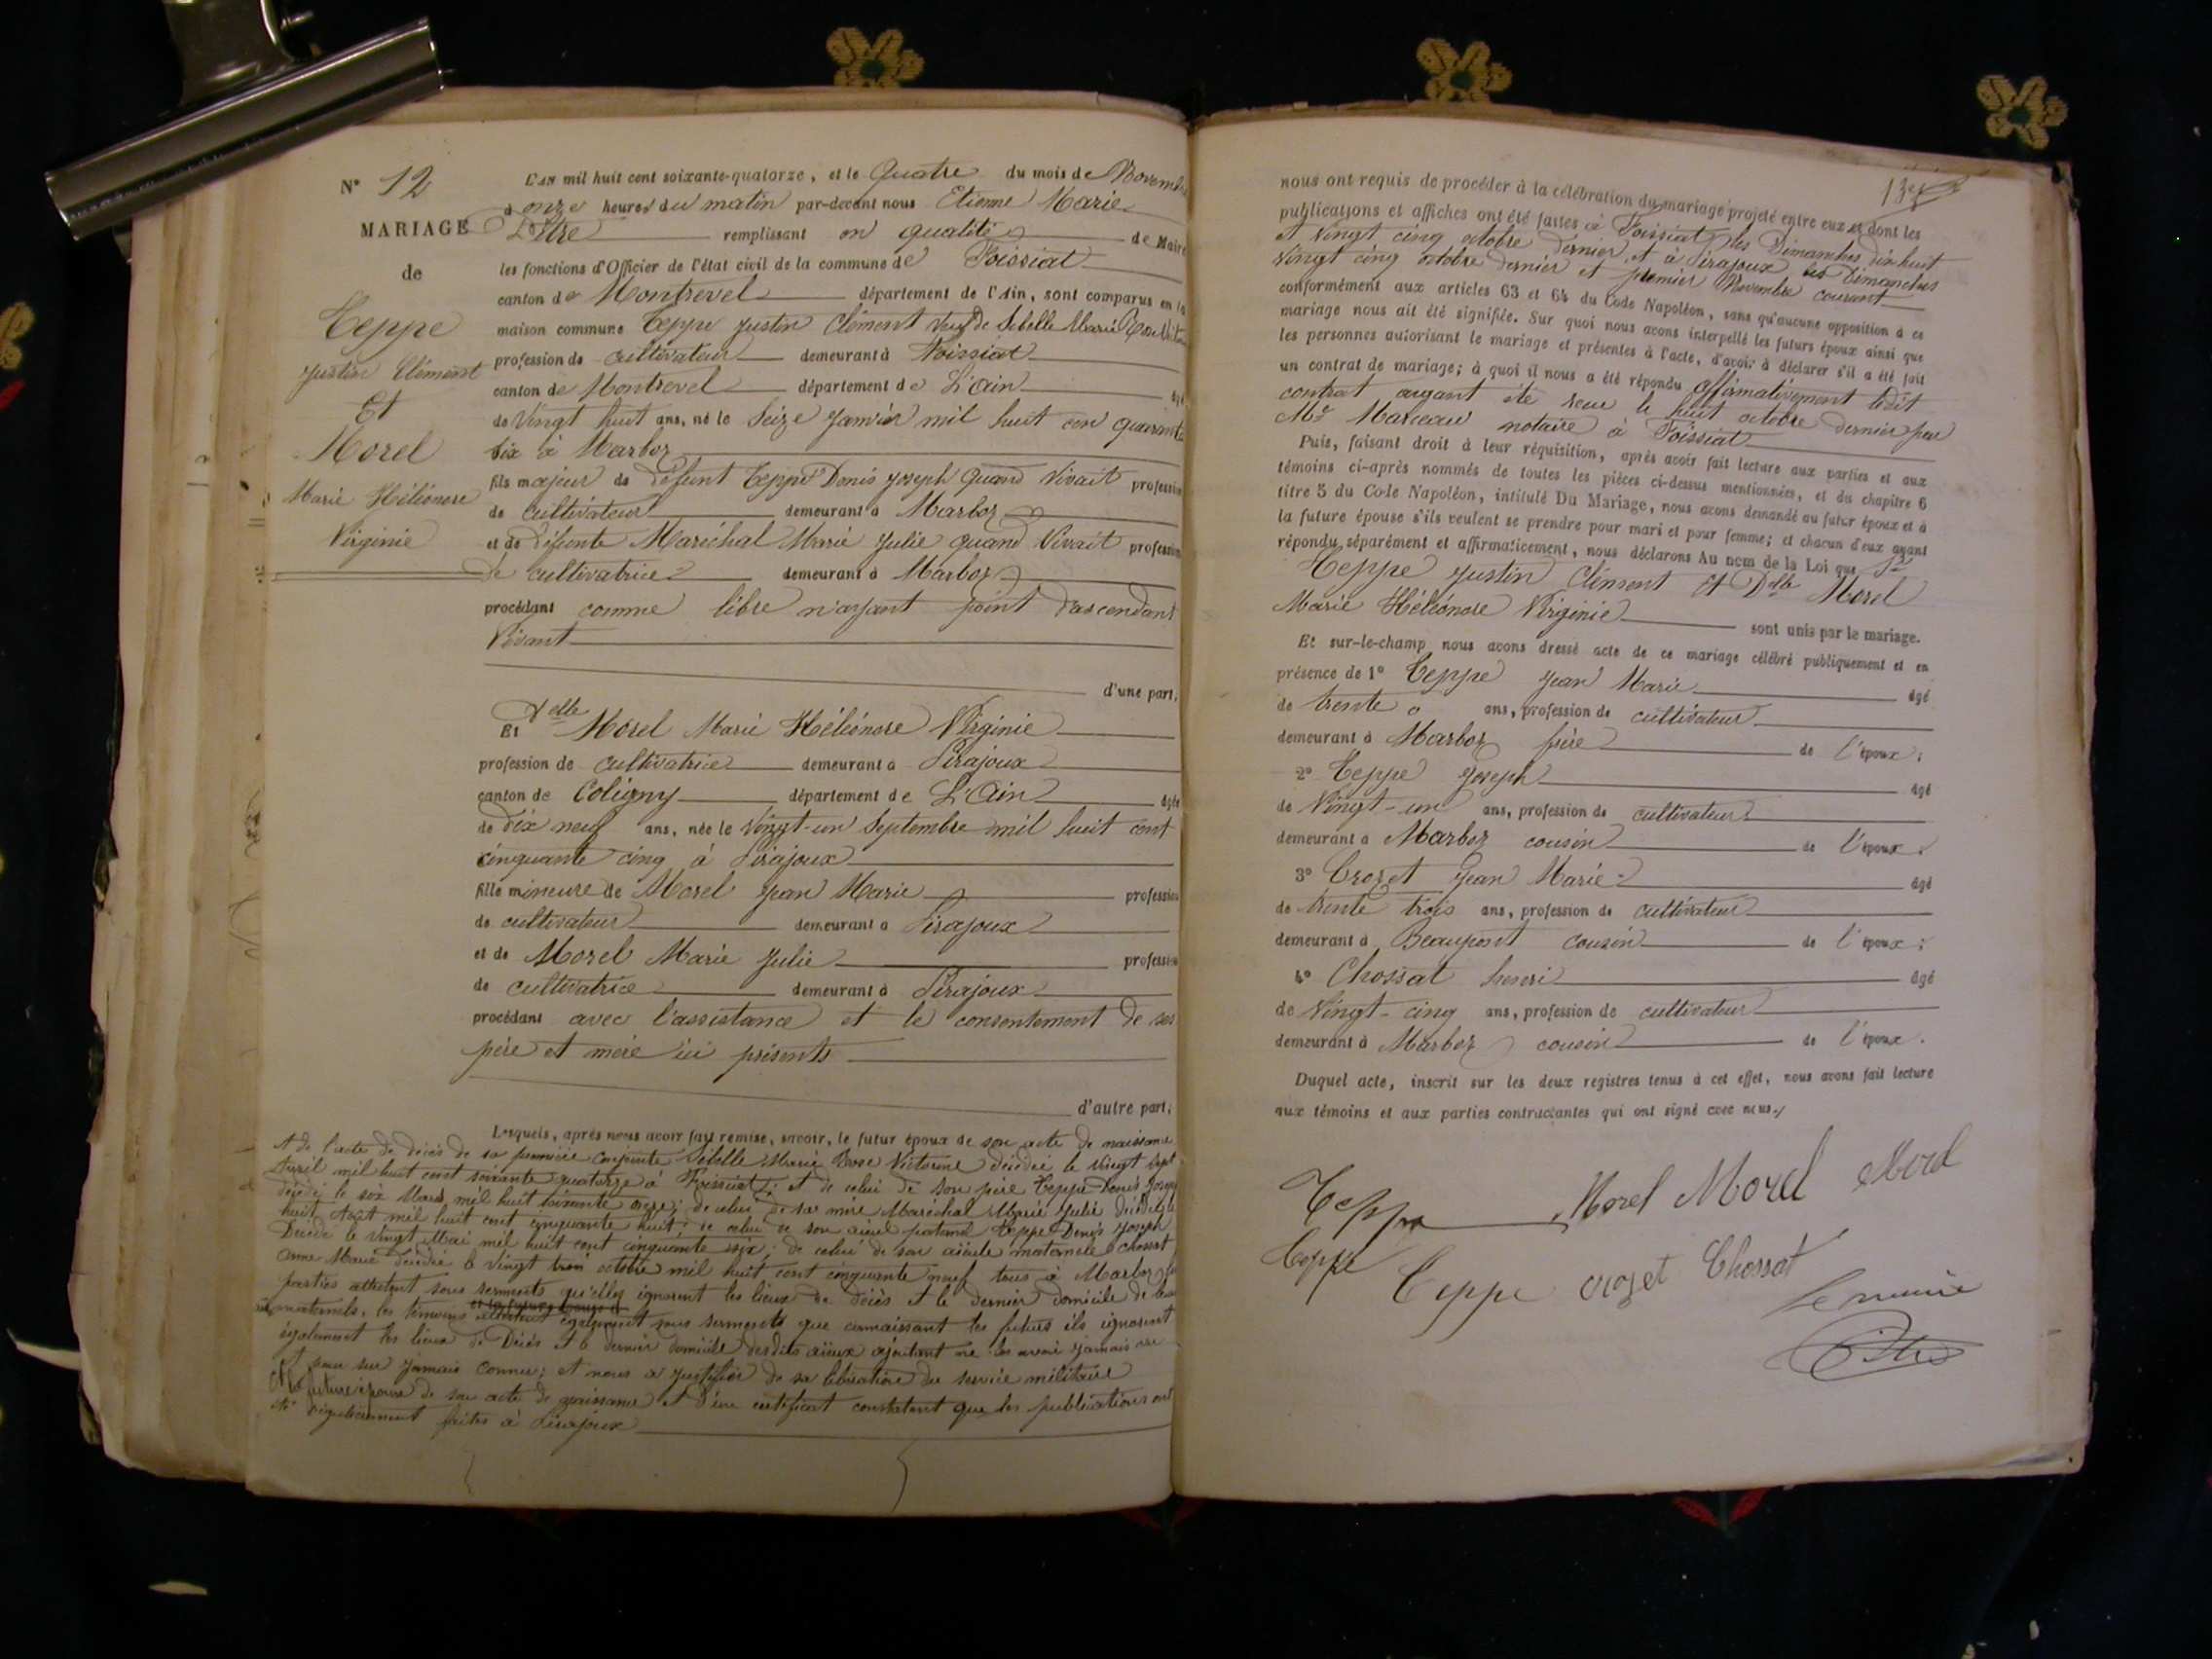 N° 12
MARIAGE
de
Teppe
Justin Clément
Et
Morel
Marie Héléonore
Virginie
L'AN mil huit cent soixante-quatorze, et le Quatre du mois de Novembre
à onze heures du matin par-devant nous Etienne Marie
remplissant en qualité de Maire
les fonctions d'Officier de l'état civil de la commune de Foissiat
canton de Montrevel département de l'Ain, sont comparus en la
maison commune Teppe Justin Clément veuf de Sibelle Marie
profession de cultivateur demeurant à Foissiat
canton de Montrevel département de L'Ain âgé
de Vingt huit ans, né le Seize Janvier mil huit cen quarante
six à Marboz
fils majeur de défunt Teppe Denis Joseph quand vivait profession
de cultivateur demeurant à Marboz
et de défunte Maréchal Marie Julie quand Vivait profession
de cultivatrice demeurant à Marboz
procédant comme libre n'ayant point d'ascendant
Vivant
d'une part,
Et delle Morel Marie Héléonore Virginie
profession de cultivatrice demeurant à Pirajoux
canton de Coligny département de L'Ain âgée
de dix neuf ans, née le Vingt-un Septembre mil huit cent
cinquante cinq à Pirajoux
fille mineure de Morel Jean Marie profession
de cultivateur demeurant à Pirajoux
et de Morel Marie Julie profession
de cultivatrice demeurant à Pirajoux
procédant avec l'assistance et le consentement de ses
père et mère ici présents
d'autre part;
Lesquels, après nous avoir fait remise, savoir, le futur époux de son acte de naissance
et de l'acte de décès de sa première conjointe Sibelle Marie Rose Victorine décédée le vingt sept
Avril mil huit cent soixante quatorze à Foissiat; et de celui de son père Teppe Denis Joseph
décédé le six Mars mil huit soixante onze; de celui de sa mère Maréchal Marie Julie décédée le
huit Août mil huit cent cinquante huit; de celui de son aïeul paternel Teppe Denis Joseph
Décédé le vingt Mai mil huit cent cinquante six; de celui de son aïeule maternele Chossat
Anne Marie décédée le vingt trois octobre mil huit cent cinquante neuf tous à Marboz
parties attestent sous serments qu'elles ignorent les lieux de décès et le dernier domicile de
maternels, les témoins attestent également sous serments que connaissant les futurs ils ignorent
également les lieux de Décès et le dernier domicile desdits aïeux ajoutant ne les avoir jamais vu
et jamais connu; et nous a justifié de sa libération du service militaire
Et la future épouse de son acte de naissance et d'un certificat constatant que les publications ont
été régulièrement faites à Pirajoux
nous ont requis de procéder à la célébration du mariage projeté entre eux et dont les
publications et affiches ont été faites à Foissiat les Dimanches dix huit
et vingt cinq octobre dernier et à Pirajoux les Dimanches
Vingt cinq octobre dernier et premier Novembre courant
conformément aux articles 63 et 64 du Code Napoléon, sans qu'aucune opposition à ce
mariage nous ait été signifiée. Sur quoi nous avons interpellé les futurs époux ainsi que
les personnes autorisant le mariage et présentes à l'acte, d'avoir à déclarer s'il a été fait
un contrat de mariage; à quoi il nous a été répondu affirmativement ledit
contrat ayant été reçu le huit octobre dernier par
Me notaire à Foissiat
Puis, faisant droit à leur réquisition, après avoir fait lecture aux parties et aux
témoins ci-après nommés de toutes les pièces ci-dessus mentionnées, et du chapitre 6
titre 5 du Code Napoléon, intitulé Du Mariage, nous avons demandé au futur époux et à
la future épouse s'ils veulent se prendre pour mari et pour femme; et chacun d'eux ayant
répondu séparément et affirmativement, nous déclarons Au nom de la Loi que Sr
Teppe Justin Clément et Delle Morel
Marie Héléonore Virginie sont unis par le mariage.
Et sur-le-champ nous avons dressé acte de ce mariage célébré publiquement et en
présence de 1° Teppe Jean Marie âgé
de trente ans, profession de cultivateur
demeurant à Marboz frère de l'époux;
2° Teppe Joseph âgé
de Vingt-un ans, profession de cultivateur
demeurant à Marboz cousin de l'époux;
3° Crozet Jean Marie âgé
de trente trois ans, profession de cultivateur
demeurant à Beaupont cousin de l'époux;
4° Chossat henri âgé
de Vingt-cinq ans, profession de cultivateur
demeurant à Marboz cousin de l'époux.
Duquel acte, inscrit sur les deux registres tenus à cet effet, nous avons fait lecture
aux témoins et aux parties contractantes qui ont signé avec nous./
Teppe Morel Morel Morel
Teppe Teppe Crozet Chossat
Le maire